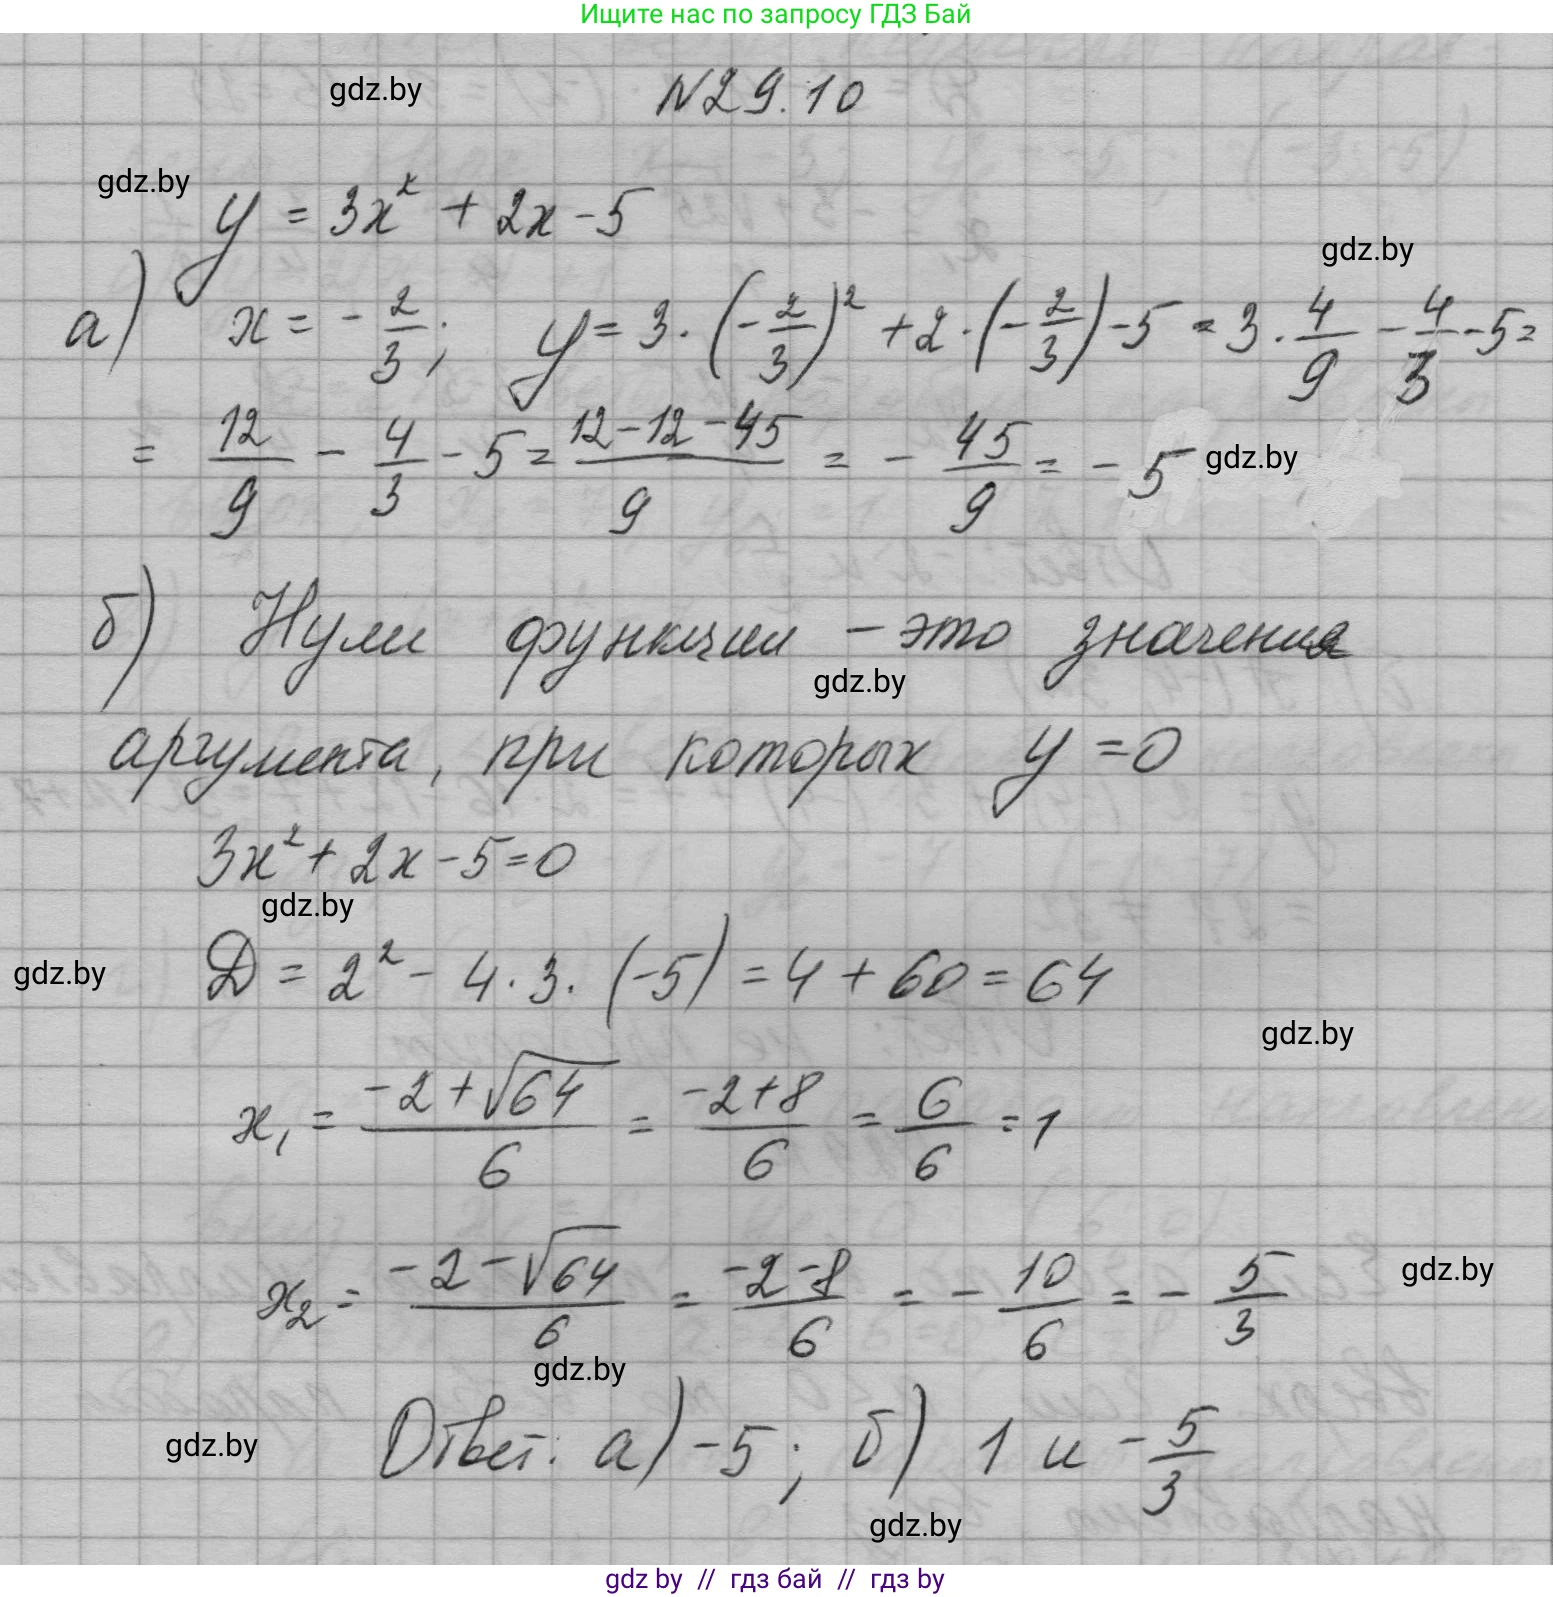 Ищите нас по запросу ГДЗ Бай
gdz.by
N29.10
gdz.by
y = 3x² + 2x - 5
gdz.by
а) x = -2/3; y = 3·(-2/3)² + 2·(-2/3) - 5 = 3·4/9 - 4/3 - 5 =
= 12/9 - 4/3 - 5 = (12-12-45)/9 = -45/9 = -5
gdz.by
б) Нули функции - это значения
gdz.by
аргумента, при которых y = 0
3x² + 2x - 5 = 0
gdz.by
D = 2² - 4·3·(-5) = 4 + 60 = 64
gdz.by
gdz.by
x₁ = (-2+√64)/6 = (-2+8)/6 = 6/6 = 1
x₂ = (-2-√64)/6 = (-2-8)/6 = -10/6 = -5/3
gdz.by
gdz.by
Ответ: а) -5; б) 1 и -5/3
gdz.by
gdz.by
gdz by // гдз бай // гдз by